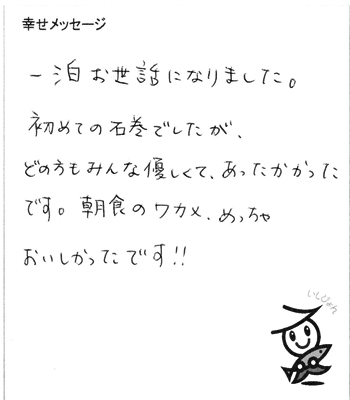 幸せメッセージ
一泊お世話になりました。
初めての石巻でしたが、
どの方もみんな優しくて、あったかかった
です。朝食のワカメ、めっちゃ
おいしかったです!!
いしぴょん